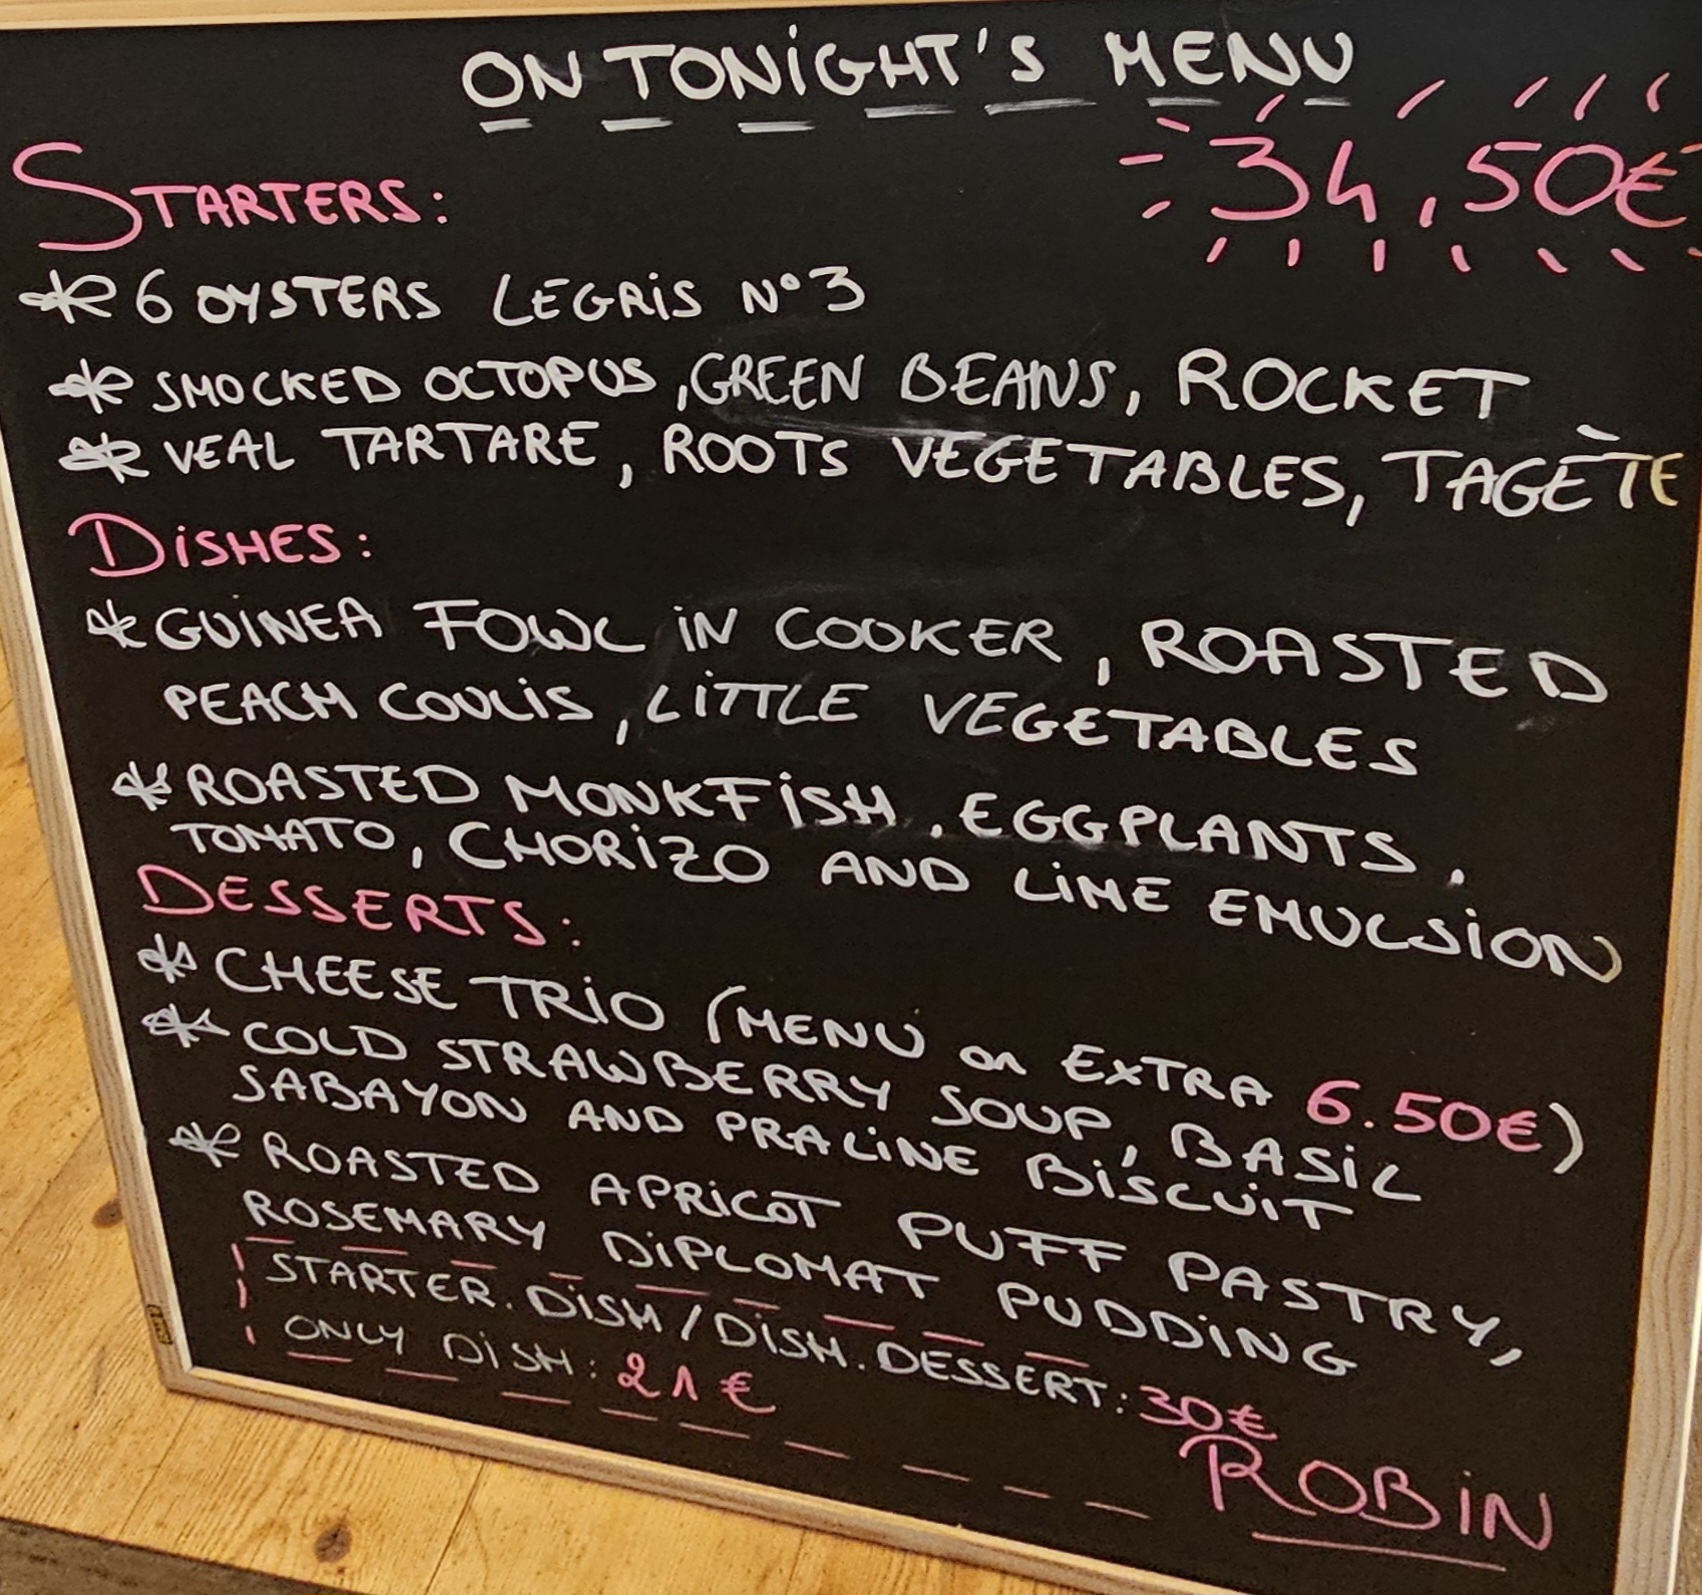 ON TONiGHT'S MENU
34,50€
STARTERS:
* 6 OYSTERS LEGRiS N°3
* SMOCKED OCTOPUS, GREEN BEANS, ROCKET
* VEAL TARTARE, ROOTS VEGETABLES, TAGÈTE
DiSHES:
* GUiNEA FOWL iN COOKER, ROASTED
PEACH COULiS, LiTTLE VEGETABLES
* ROASTED MONKFiSH, EGGPLANTS,
TOMATO, CHORiZO AND LiME EMULSiON
DESSERTS:
* CHEESE TRiO (MENU OR EXTRA 6.50€)
* COLD STRAWBERRY SOUP, BASiL
SABAYON AND PRALiNE BiSCUiT
* ROASTED APRiCOT PUFF PASTRY,
ROSEMARY DiPLOMAT PUDDiNG
STARTER.DiSH/DiSH.DESSERT: 30€
ONLY DiSH: 21€
ROBiN